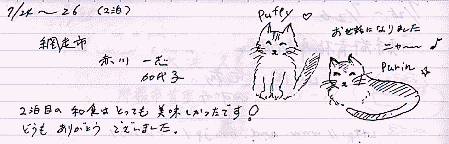 7/24 〜 26 (2泊)
網走市
赤川 一志
加代子
2泊目の 和食は とっても 美味しかったです!
どうも ありがとう ございました。
Puffy ♡
お世話になりました
ニャ〜 ♪
Purin ☆